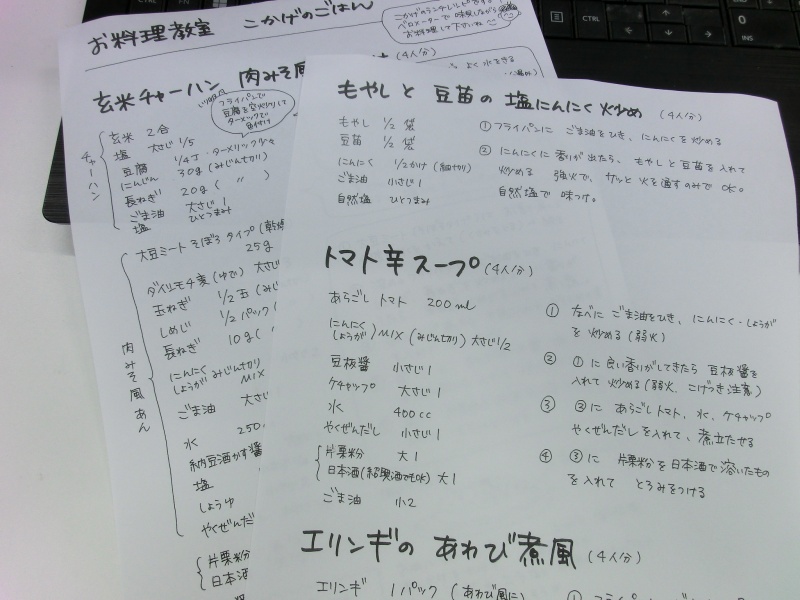 お料理教室 こかげのごはん
こかげのランチレシピです
ベロメーターで味見しながら
お料理して下さいね
玄米チャーハン 肉みそ風
(4人分)
よく水をきる
フライパンで
豆腐を空炒りして
ターメリックで
色付け
チャーハン
玄米 2合
塩 大さじ1/5
豆腐 1/4丁・ターメリック少々
にんじん 30g(みじん切り)
長ねぎ 20g( 〃 )
ごま油 大さじ1
塩 ひとつまみ
肉みそ風あん
大豆ミートそぼろタイプ(乾燥
25g
ダイシモチ麦(ゆで) 大さじ
玉ねぎ 1/2玉(みじ
しめじ 1/2パック(
長ねぎ 10g(
にんにく
しょうが みじん切り MIX 大さじ
ごま油 大さじ
水 250
納豆酒かす醤
塩
しょうゆ
やくぜんだ
片栗粉
日本酒
もやしと豆苗の塩にんにく炒め (4人分)
もやし 1/2袋
豆苗 1/2袋
にんにく 1/2かけ(細切り)
ごま油 小さじ1
自然塩 ひとつまみ
①フライパンに ごま油をひき、にんにくを炒める
② にんにくに香りが出たら、もやしと豆苗を入れて
炒める 強火で、サッと火を通すのみでOK。
自然塩で味つけ。
トマト辛スープ(4人分)
あらごしトマト 200ml
にんにく
しょうが)MIX(みじん切り)大さじ1/2
豆板醤 小さじ1
ケチャップ 大さじ1
水 400cc
やくぜんだし 小さじ1
片栗粉 大1
日本酒(紹興酒でもOK) 大1
ごま油 小2
① なべに ごま油をひき、にんにく・しょうが
を炒める(弱火)
② ①に良い香りがしてきたら 豆板醤を
入れて炒める(弱火、こげつき注意)
③ ②に あらごしトマト、水、ケチャップ
やくぜんだしを入れて、煮立たせる
④ ③に 片栗粉を日本酒で溶いたもの
を入れて とろみをつける
エリンギの あわび煮風 (4人分)
エリンギ 1パック(あわび風に
CTRL
INS